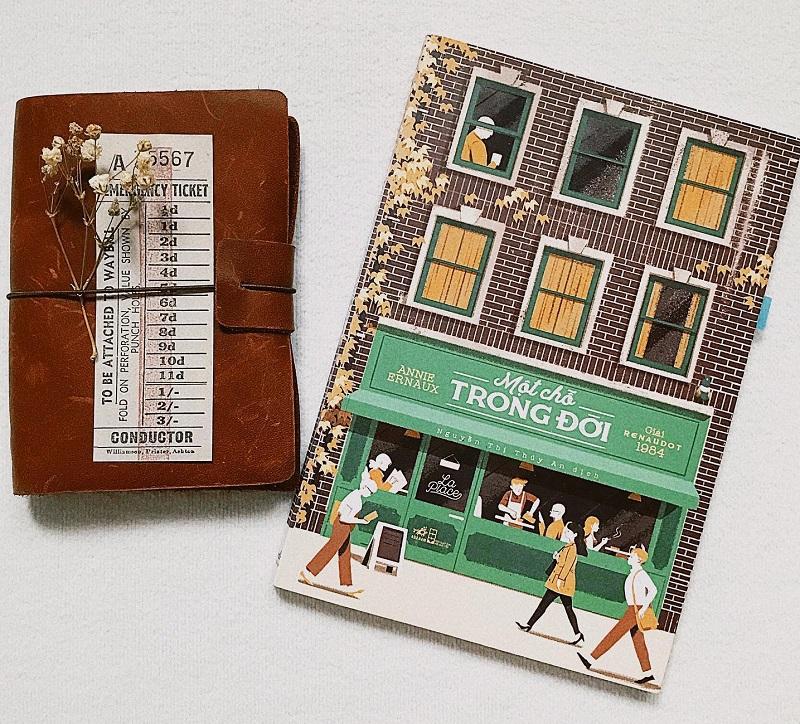 A 5567
EMERGENCY TICKET
½d
1d
2d
3d
4d
6d
7d
8d
9d
10d
11d
1/-
2/-
3/-
TO BE ATTACHED TO WAYBILL
FOLD ON PERFORATION, VALUE SHOWN BY
PUNCH HOLE
CONDUCTOR
Williamson, Printer, Ashton
ANNIE
ERNAUX
Một chỗ
TRONG ĐỜI
Giải
RENAUDOT
1984
Nguyễn Thị Thúy An dịch
La
Place